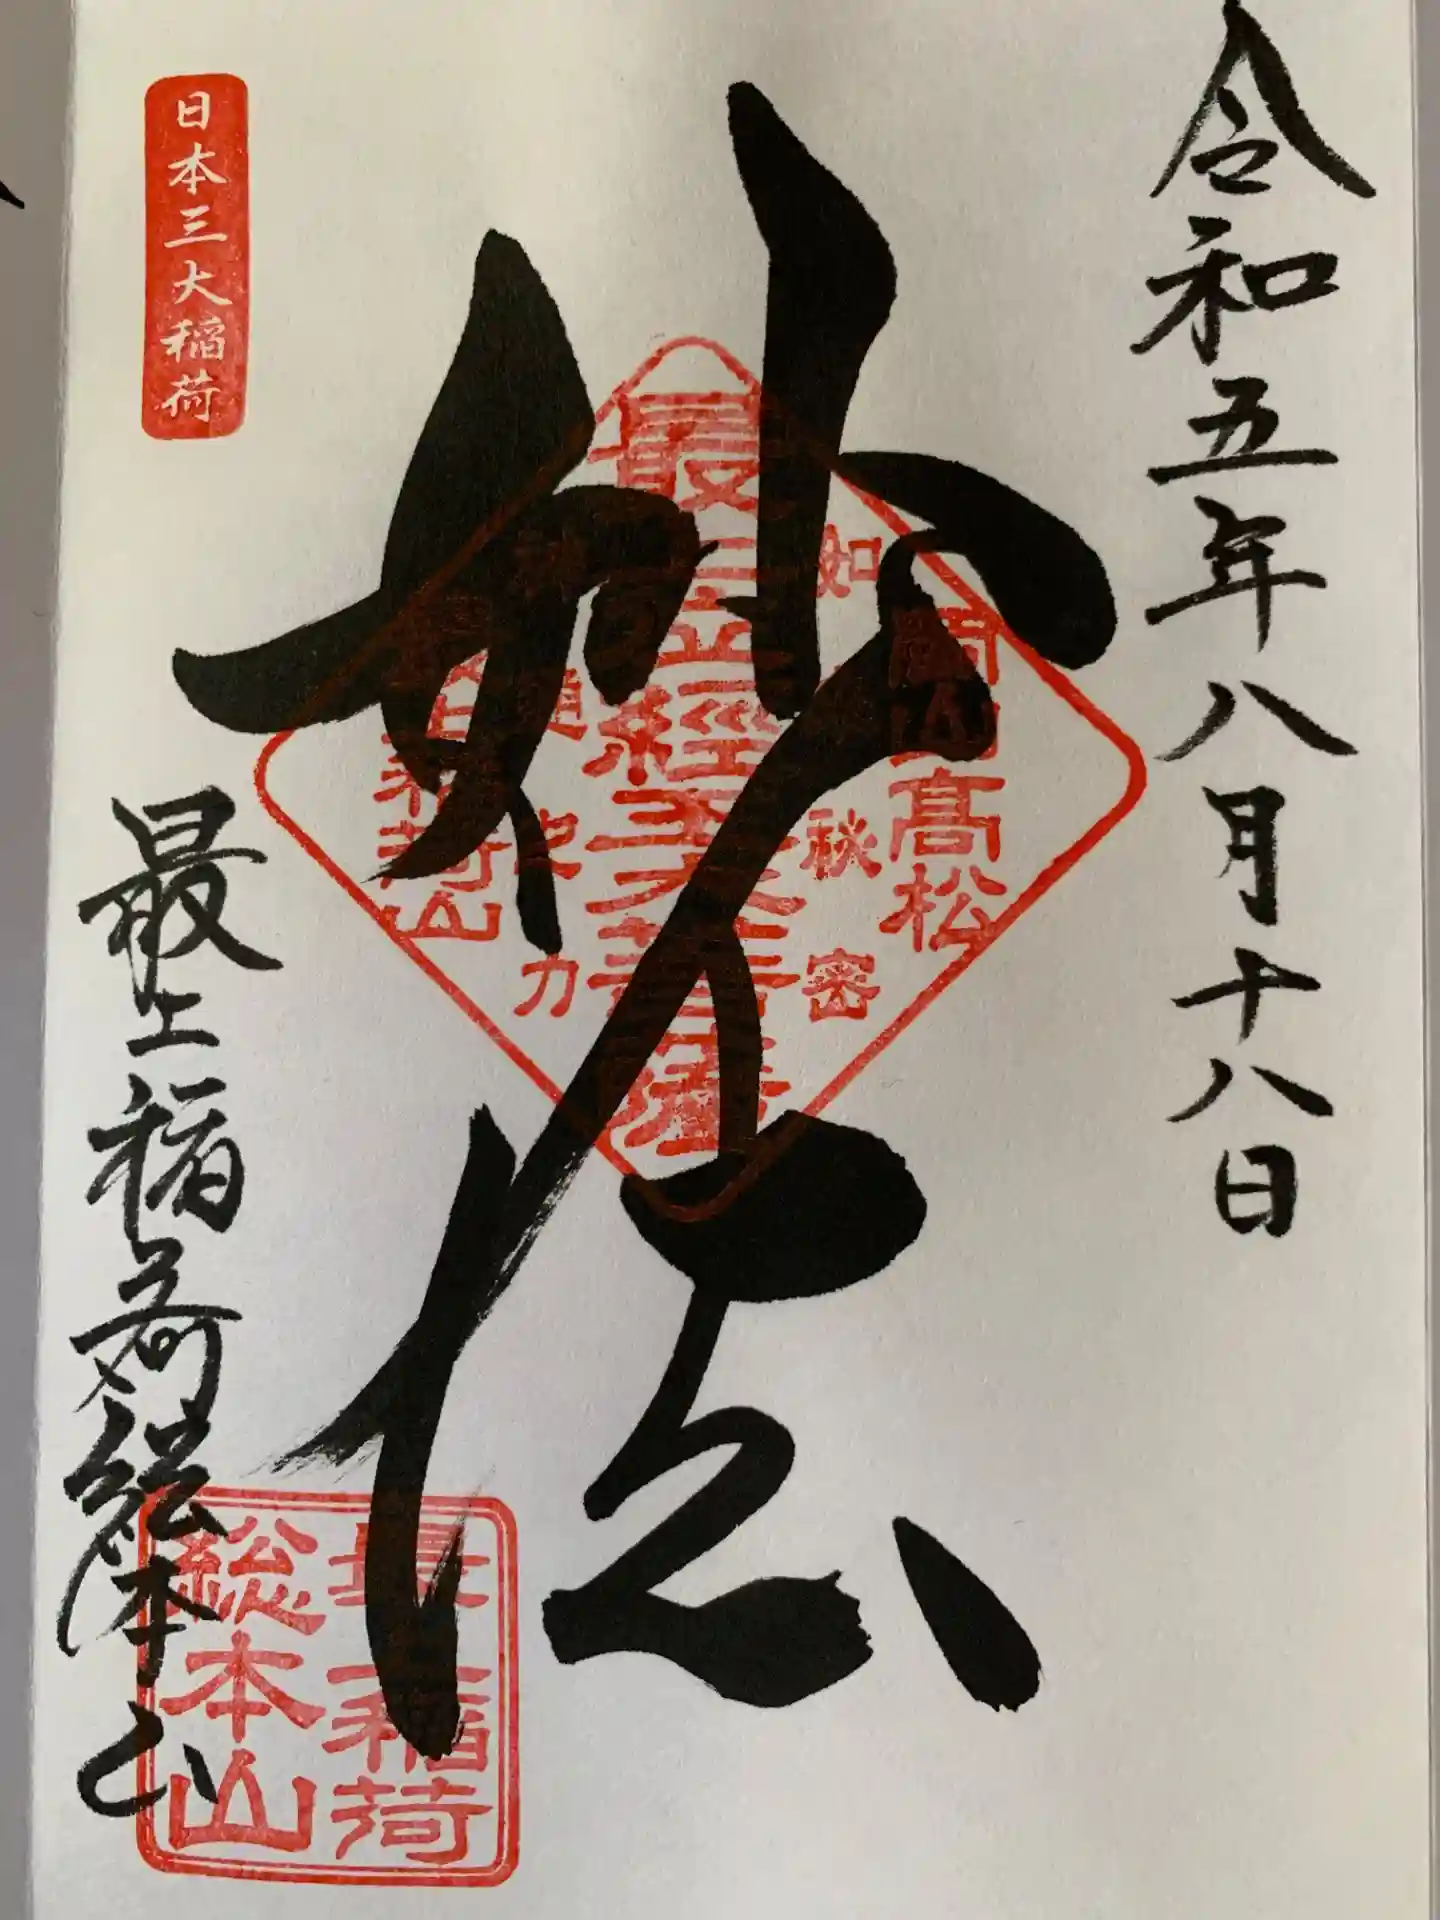 令和五年八月十八日
妙法
日本三大稲荷
最上稲荷総本山
岡山高松
如
秘密
最上位経王大菩薩
力
最上稲荷山
最上稲荷
総本山